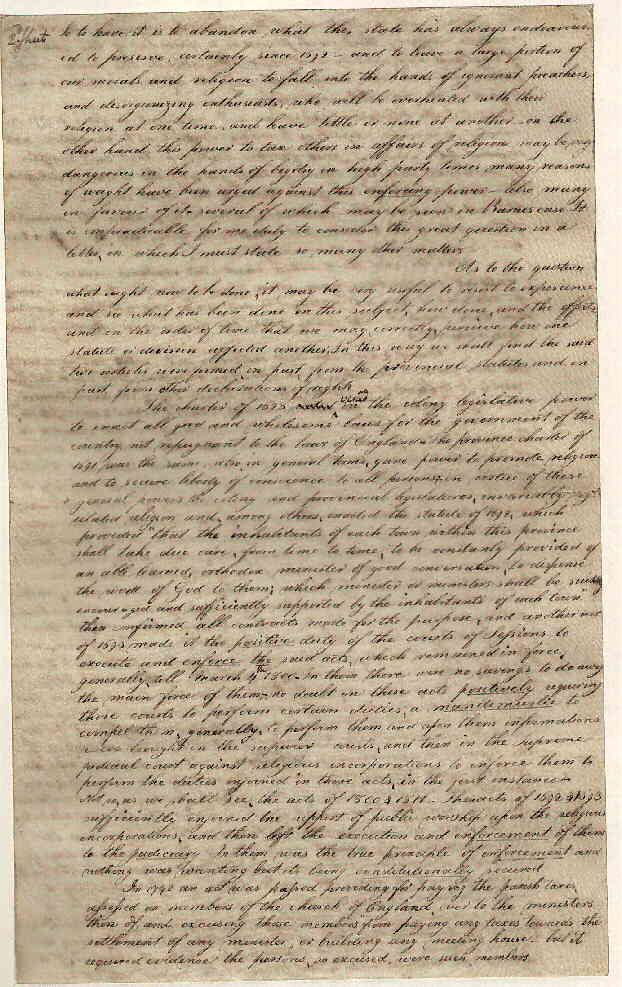 2 Sheet
So to have it is to abandon what the state has always endeavour
ed to preserve, certainly since 1692 – and to leave a large portion of
our morals and religion to fall into the hands of ignorant preachers,
and disorganizing enthusiasts, who will be overheated with their
religion at one time, and have little or none at another – on the
other hand this power to tax others in affairs of religion may be very
dangerous in the hands of bigotry in high party times, many reasons
of waght have been urged against this enforcing power – also many
in favour of it several of which may be seen in Barnes case. It
is impracticable for me duly to consider this great question in a
letter, in which I must state so many other matters
As to the question
what ought now to be done, it may be very useful to resort to experience
and see what has been done in this subject, how done, and the effects
and in the order of time that we may correctly perceive how one
statute or decision affected another. In this way we shall find the said
two articles were formed, in part, from the provincial statutes and in
part from other declarations of rights
The charter of 1628 vested in the colony legislative power
to enact all good and wholesome laws for the government of the
country, not repugnant to the laws of England. The province charter of
1691 was the same, also, in general terms, gave power to promote religion
and to secure liberty of conscience to all persons, in virtue of these
general powers the colony and provincial legislatures, invariably reg
ulated religion and, among others, enacted the statute of 1692, which
provided "that the inhabitants of each town within this province
shall take due care, from time to time, to be constantly provided of
an able learned, orthodox minister of good conversation, to dispense
the word of God to them; which minister or ministers shall be suitably
encouraged and sufficiently supported by the inhabitants of each town"
then confirmed all contracts made for the purpose, and another act
of 1693 made it the positive duty of the courts of sessions to
execute and enforce the said acts, which remained in force,
generally till March 4th 1800. in them there were no savings to do away
the main force of them; no doubt in these acts positively requiring
those courts to perform certain duties, a mandamus to
compel them, generally, to perform them and upon them informations
were brought in the superior courts, and then in the supreme
judicial court against religious incorporations to enforce them to
perform the duties enjoined in these acts, in the first instance
Not so, as we shall see, the acts of 1800 & 1811 – The acts of 1692 & 1693
sufficiently enjoined the support of public worship upon the religious
incorporations, and then left the execution and enforcement of them
to the judiciary in them was the true principle of enforcement and
nothing was wanting but its being constitutionally secured
In 1742 an act was passed providing for paying the parish taxes
assessed on members of the church of England, over to the ministers
thereof, and excusing those members from paying any taxes towards the
settlement of any minister, or building any meeting house. but it
required evidence the persons, so excused, were such members